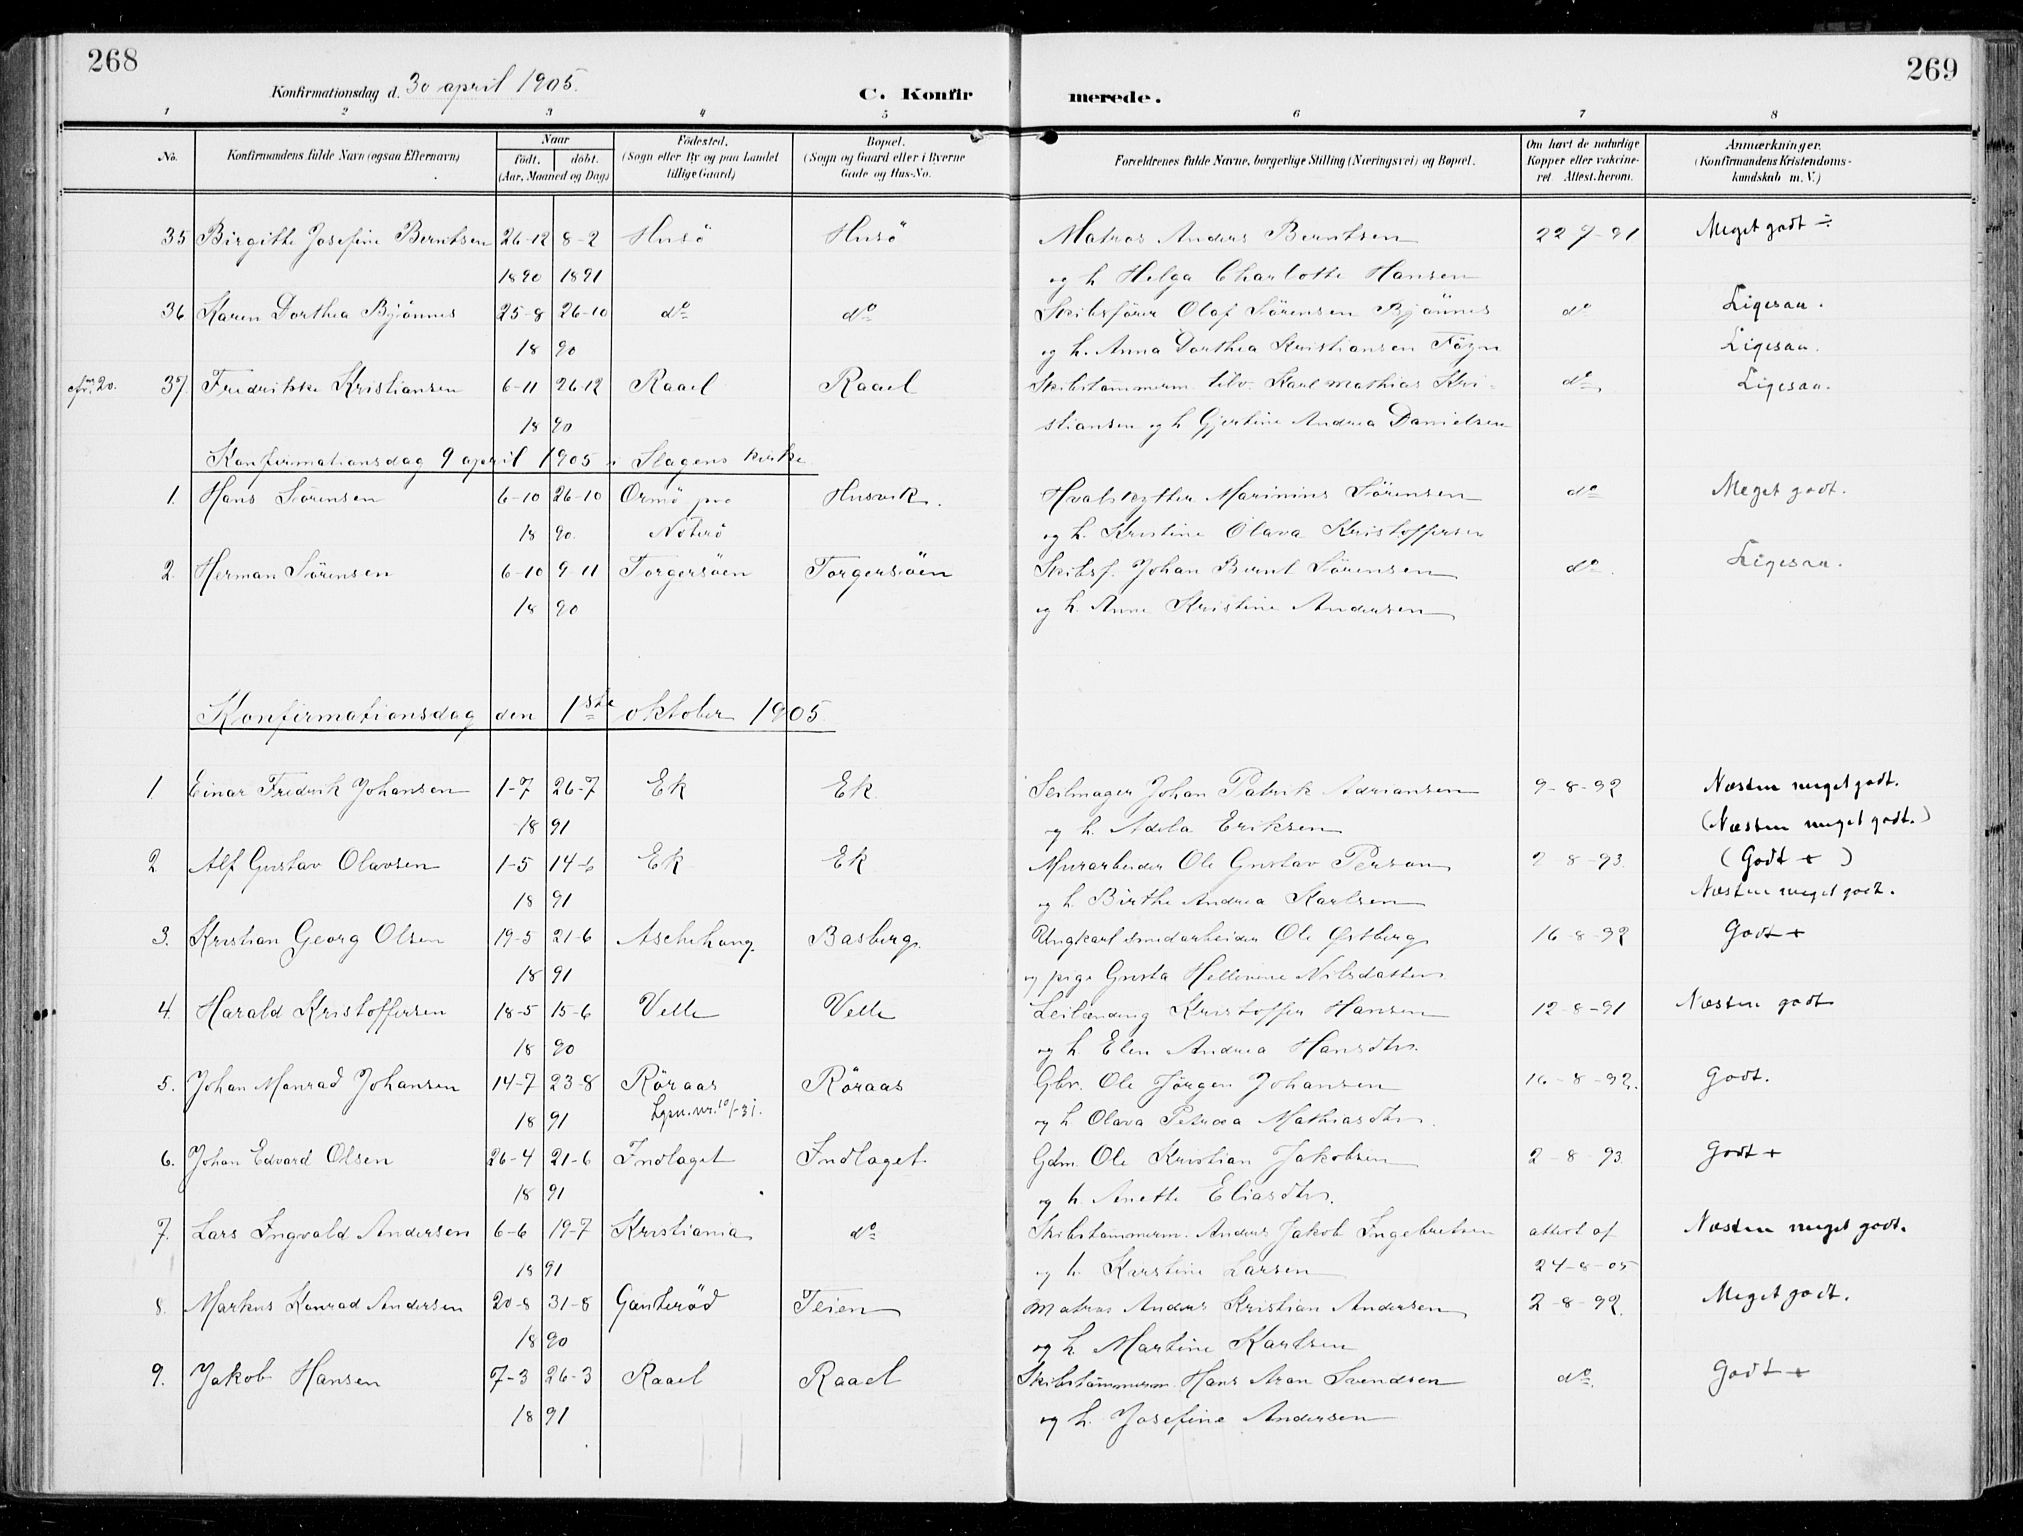 268
269
Konfirmationsdag d. 30 april 1905.
C. Konfirmerede.
1 2 3 4 5 6 7 8
No.
Konfirmandens fulde Navn (ogsaa Efternavn)
Naar
født. døbt.
(Aar, Maaned og Dag)
Fødested.
(Sogn eller By og paa Landet
tillige Gaard)
Bopæl.
(Sogn og Gaard eller i Byerne
Gade og Hus-No.
Forældrenes fulde Navne, borgerlige Stilling (Næringsvei) og Bopæl.
Om havt de naturlige
Kopper eller vakcine-
ret. Attest herom.
Anmærkninger.
(Konfirmandens Kristendoms-
kundskab m. V.)
35 Birgitte Josefine Berntsen 26-12 8-2 Husö Husö Matros Anders Berntsen 22-7-91 Meget godt ÷
1890 1891 og h Helga Charlotte Hansen
36 Karen Dorthea Bjönnes 25-8 26-10 do do Skibsfører Olaf Sørensen Bjönnes do Ligesaa.
18 90 og h. Anna Dorthea Kristiansen Føyn Ligesaa.
20. 37 Fredrikke Kristiansen 6-11 26-12 Raael Raael Skibstømmerm. tilv. Karl Mathias Kri- do Ligesaa.
18 90 stiansen og h Gjertine Andrea Danielsen
Konfirmationsdag 9 april 1905 i Slagens kirke
1. Hans Sörensen 6-10 26-10 Ormö pr Husvik. Hvalskytter Marinius Sörensen do Meget godt.
18 90. Nöterö og h. Kristine Olava Kristoffersen
2. Herman Sörensen 6-10 9-11 Torgersöen Torgersöen Skibsf. Johan Bernt Sörensen do. Ligesaa.
18 90 og h. Anne Kristine Andersen
Konfirmationsdag den 1ste oktober 1905
1. Einar Fredrik Johansen 1-7 26-7 Ek Ek. Seilmager Johan Patrik Adriansen 9-8-92 Næsten meget godt.
18 91 og h. Adela Eriksen (Næsten meget godt.)
2 Alf Gustav Olavsen 1-5 14-6 Ek Ek Murarbeider Ole Gustav Persson 2-8-93. (Godt + )
18 91 og h. Birthe Andrea Karlsen Næsten meget godt.
3. Kristian Georg Olsen 19-5 21-6 Aschehoug. Basberg. Ungkarl smedarbeider Ole Østberg 16-8-92 Godt +
18 91 og pige Gusta Hellevine Nilsdatter
4. Harald Kristoffersen 18-5 15-6 Velle Velle Leilænding Kristoffer Hansen 12-8-91 Næsten godt
18 90 og h. Elen Andrea Hansdtr.
5. Johan Monrad Johansen 14-7 23-8 Röraas Röraas Gbr. Ole Jørgen Johansen 16-8-92. Godt.
18 91 Lysn. nr. 10/-31. og h Olava Petrea Mathiasdtr.
6. Johan Edvard Olsen 26-4 21-6 Indlaget Indlaget. Gdm. Ole Kristian Jakobsen 2-8-93. Godt +
18 91 og h. Anette Eliasdtr.
7. Lars Ingvald Andersen 6-6 19-7 Kristiania do Skibstømmerm. Anders Jakob Ingebretsen attest af Næsten meget godt.
18 91 og h. Karstine Larsen 24-8-05
8. Markus Konrad Andersen 20-8 31-8 Gauteröd Teien Matros Anders Kristian Andersen 2-8-92. Meget godt.
18 90 og h. Martine Karlsen
9. Jakob Hansen 7-3 26-3 Raael Raael Skibstømmerm. Hans Aron Svendsen do. Godt +
18 91 og h. Josefine Andersen